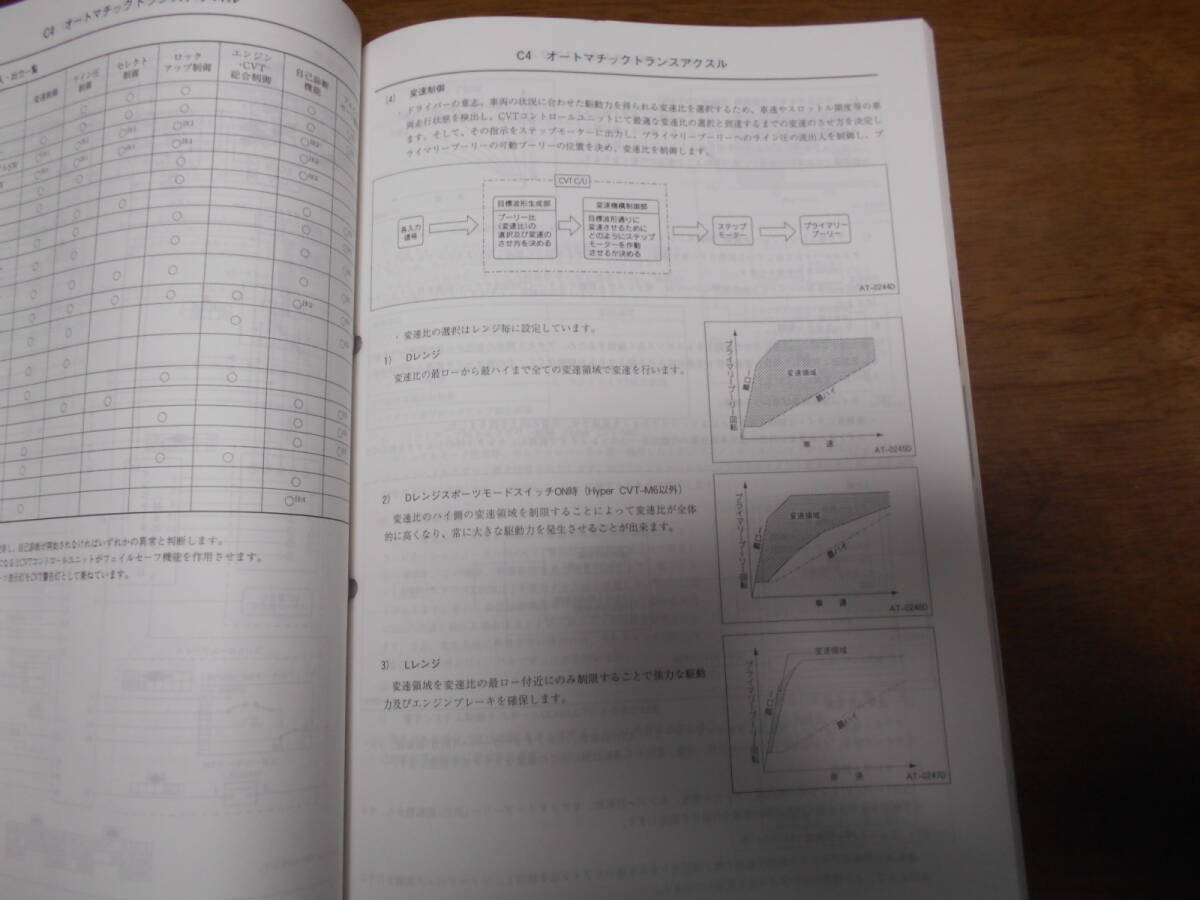 C4 オートマチックトランスアクスル
入・出力一覧
変速制御
ライン圧
制御
セレクト
制御
ロック
アップ制御
エンジン
・CVT
総合制御
自己診断
機能
自己診断が開始されなければいずれかの異常と判断します。
CVTコントロールユニットがフェイルセーフ機能を作用させます。
表示灯をCVT警告灯として兼ねています。
C4 オートマチックトランスアクスル
(4) 変速制御
・ドライバーの意志、車両の状況に合わせた駆動力を得られる変速比を選択するため、車速やスロットル開度等の車
両走行状態を検出し、CVTコントロールユニットにて最適な変速比の選択と到達するまでの変速のさせ方を決定し
ます。そして、その指示をステップモーターに出力し、プライマリープーリーへのライン圧の流出入を制御し、プ
ライマリープーリーの可動プーリーの位置を決め、変速比を制御します。
CVT C/U
各入力
信号
目標波形生成部
プーリー比
(変速比)の
選択及び変速の
させ方を決める
変速機構制御部
目標波形通りに
変速させるために
どのようにステップ
モーターを作動
させるか決める
ステップ
モーター
プライマリー
プーリー
AT-0244D
・変速比の選択はレンジ毎に設定しています。
1) Dレンジ
変速比の最ローから最ハイまで全ての変速領域で変速を行います。
プライマリープーリー回転
最ロー
変速領域
最ハイ
車 速
AT-0245D
2) DレンジスポーツモードスイッチON時(Hyper CVT-M6以外)
変速比のハイ側の変速領域を制限することによって変速比が全体
的に高くなり、常に大きな駆動力を発生させることが出来ます。
プライマリープーリー回転
最ロー
変速領域
最ハイ
車 速
AT-0246D
3) Lレンジ
変速領域を変速比の最ロー付近にのみ制限することで強力な駆動
力及びエンジンブレーキを確保します。
プライマリープーリー回転
最ロー
変速領域
最ハイ
車 速
AT-0247D